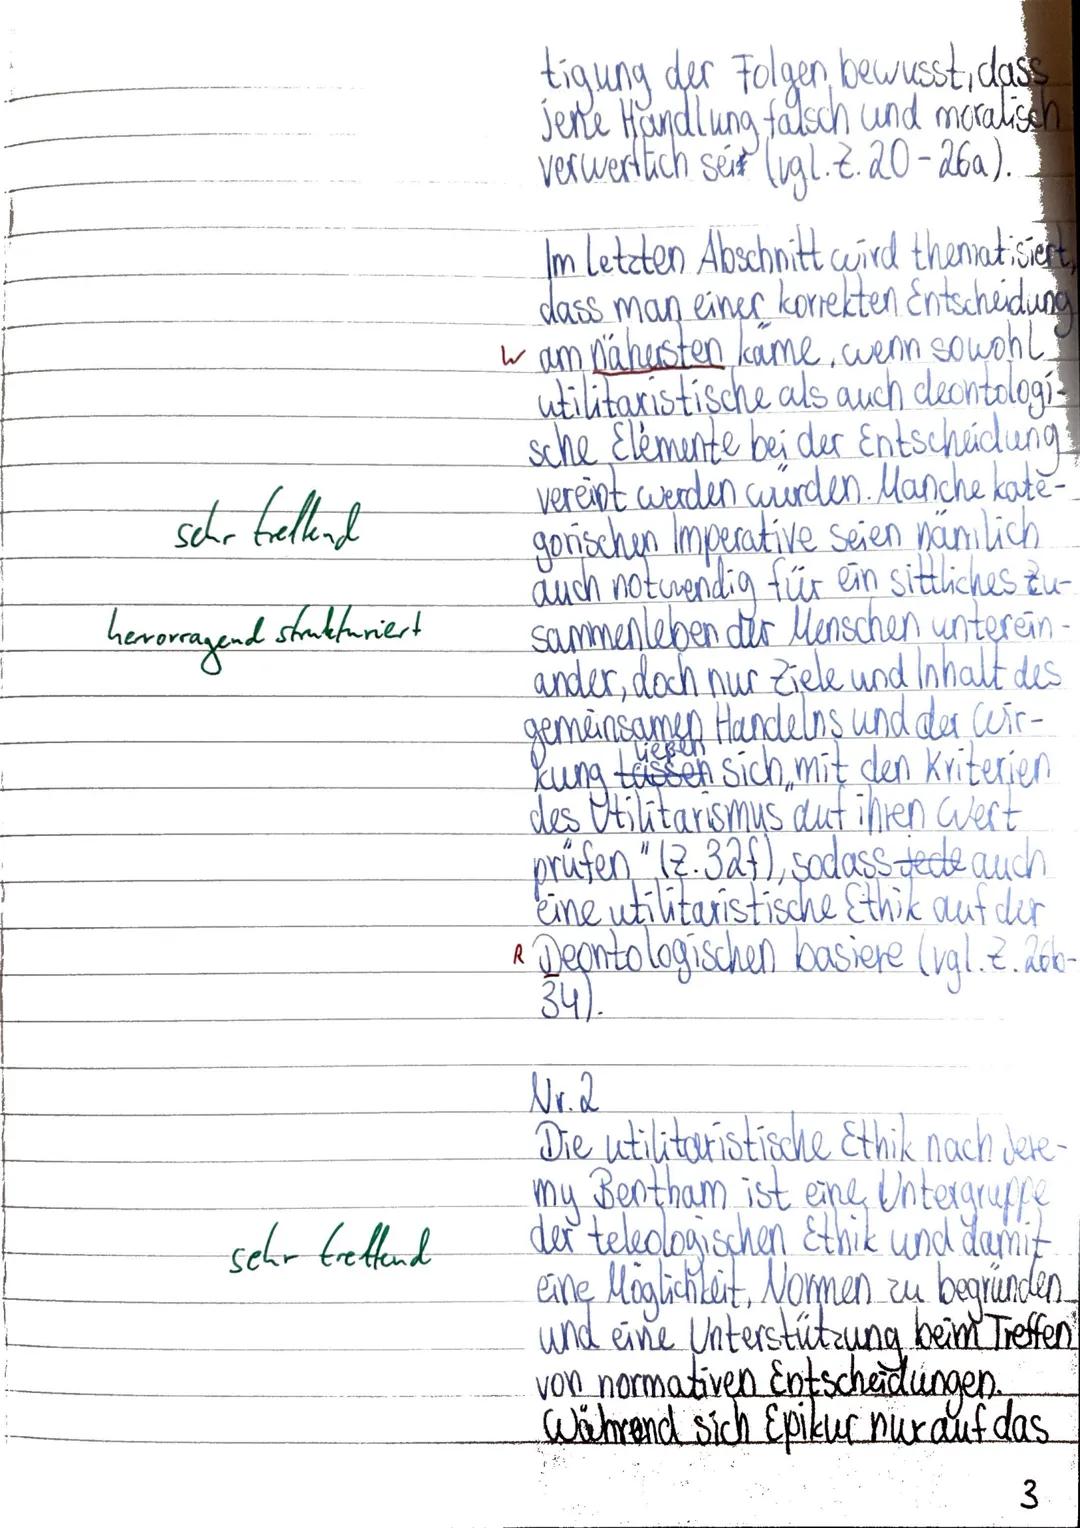 tigung der Folgen bewusst, dass
jene Handlung falsch und moralisch
verwerflich sei (vgl. Z. 20-26a).
Im letzten Abschnitt wird thematisiert,
dass man einer korrekten Entscheidung
W am nähersten käme, wenn sowohl
utilitaristische als auch deontologi-
sche Elemente bei der Entscheidung
vereint werden würden. Manche kate-
sehr treffend
gorischen Imperative seien nämlich
auch notwendig für ein sittliches Zu-
hervorragend strukturiert
sammenleben der Menschen unterein-
ander, doch nur Ziele und Inhalt des
gemeinsamen Handelns und der Wir-
ließen
kung lassen sich „mit den Kriterien
des Utilitarismus auf ihren Wert
prüfen" (Z. 32f), sodass jede auch
eine utilitaristische Ethik auf der
R Deontologischen basiere (vgl. Z. 26b-
34).
Nr. 2
Die utilitaristische Ethik nach Jere-
my Bentham ist eine Untergruppe
sehr treffend
der teleologischen Ethik und damit
eine Möglichkeit, Normen zu begründen
und eine Unterstützung beim Treffen
von normativen Entscheidungen.
Während sich Epikur nur auf das
3